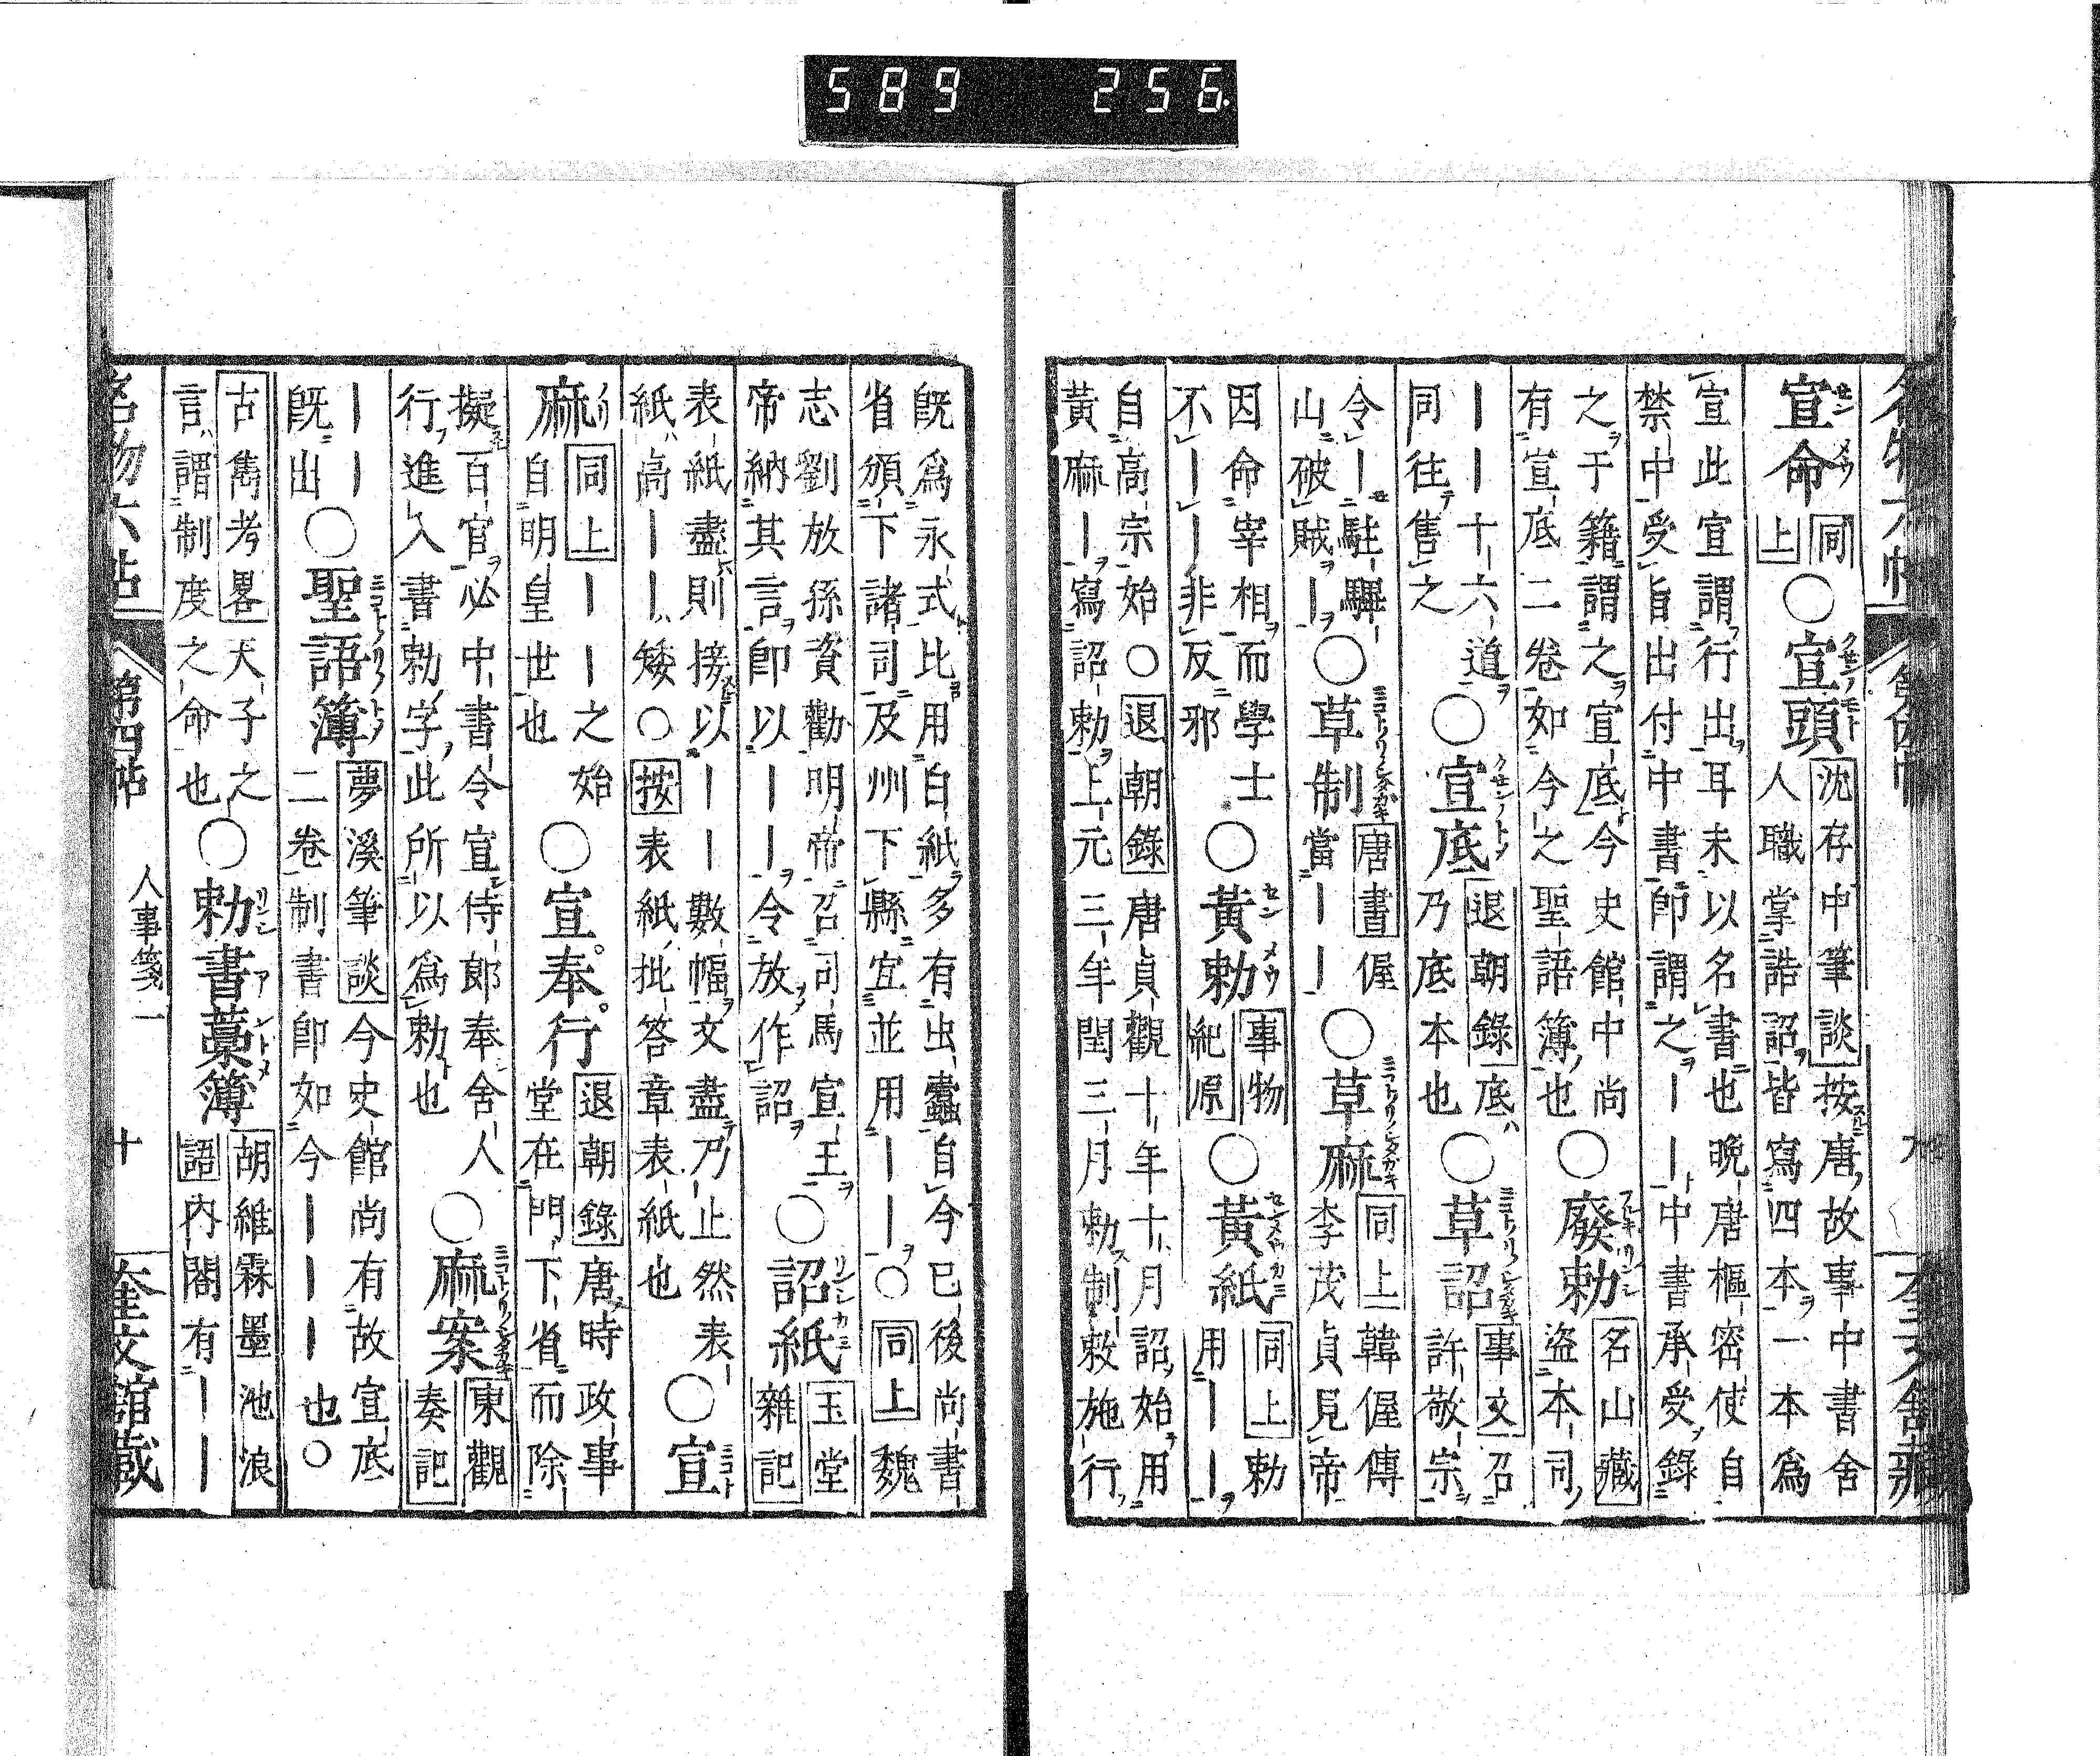 589 256
名物六帖 第四帖 九 奎文館藏
宣命 同上 ○宣頭 沈存中筆談按唐故事中書舍
人職掌誥詔皆寫四本一本爲
宣此宣謂行出耳未以名書也晚唐樞密使自
禁中受旨出付中書即謂之——中書承受錄
之于籍謂之宣底今史館中尚
有宣底二卷如今之聖語簿也 ○廢勅 名山藏
盜本司
——十六道
同往售之 ○宣底 退朝錄底
乃底本也 ○草詔 事文召
許敬宗
令—駐驆
山破賊— ○草制 唐書偓
當—— ○草麻 同上韓偓傳
李茂貞見帝
因命宰相而學士
不——非反邪 ○黃勅 事物
紀原 ○黃紙 同上勅
用——
自高宗始○退朝錄唐貞觀十年十月詔始用
黃麻—寫詔勅上元三年閏三月勅制敕施行
既爲永式比用白紙多有出蠹自今已後尚書
省頒下諸司及州下縣宜並用——○同上魏
志劉放孫資勸明帝召司馬宣王
帝納其言即以——令放作詔 ○詔紙 玉堂
雜記
表紙盡則接以——數幅文盡乃止然表
紙高——矮○按表紙批答章表紙也 ○宣
麻 同上——之始
自明皇世也 ○宣奉行 退朝錄唐時政事
堂在門下省而除
擬百官必中書令宣侍郎奉舍人
行進入書勅字此所以爲勅也 ○麻案 東觀
奏記
——
既出 ○聖語簿 夢溪筆談今史館尚有故宣底
二卷制書即如今———也○
古雋考畧天子之
言謂制度之命也 ○勅書藁簿 胡維霖墨池浪
語內閣有——
名物六帖 第四帖 人事箋一 十 奎文館藏